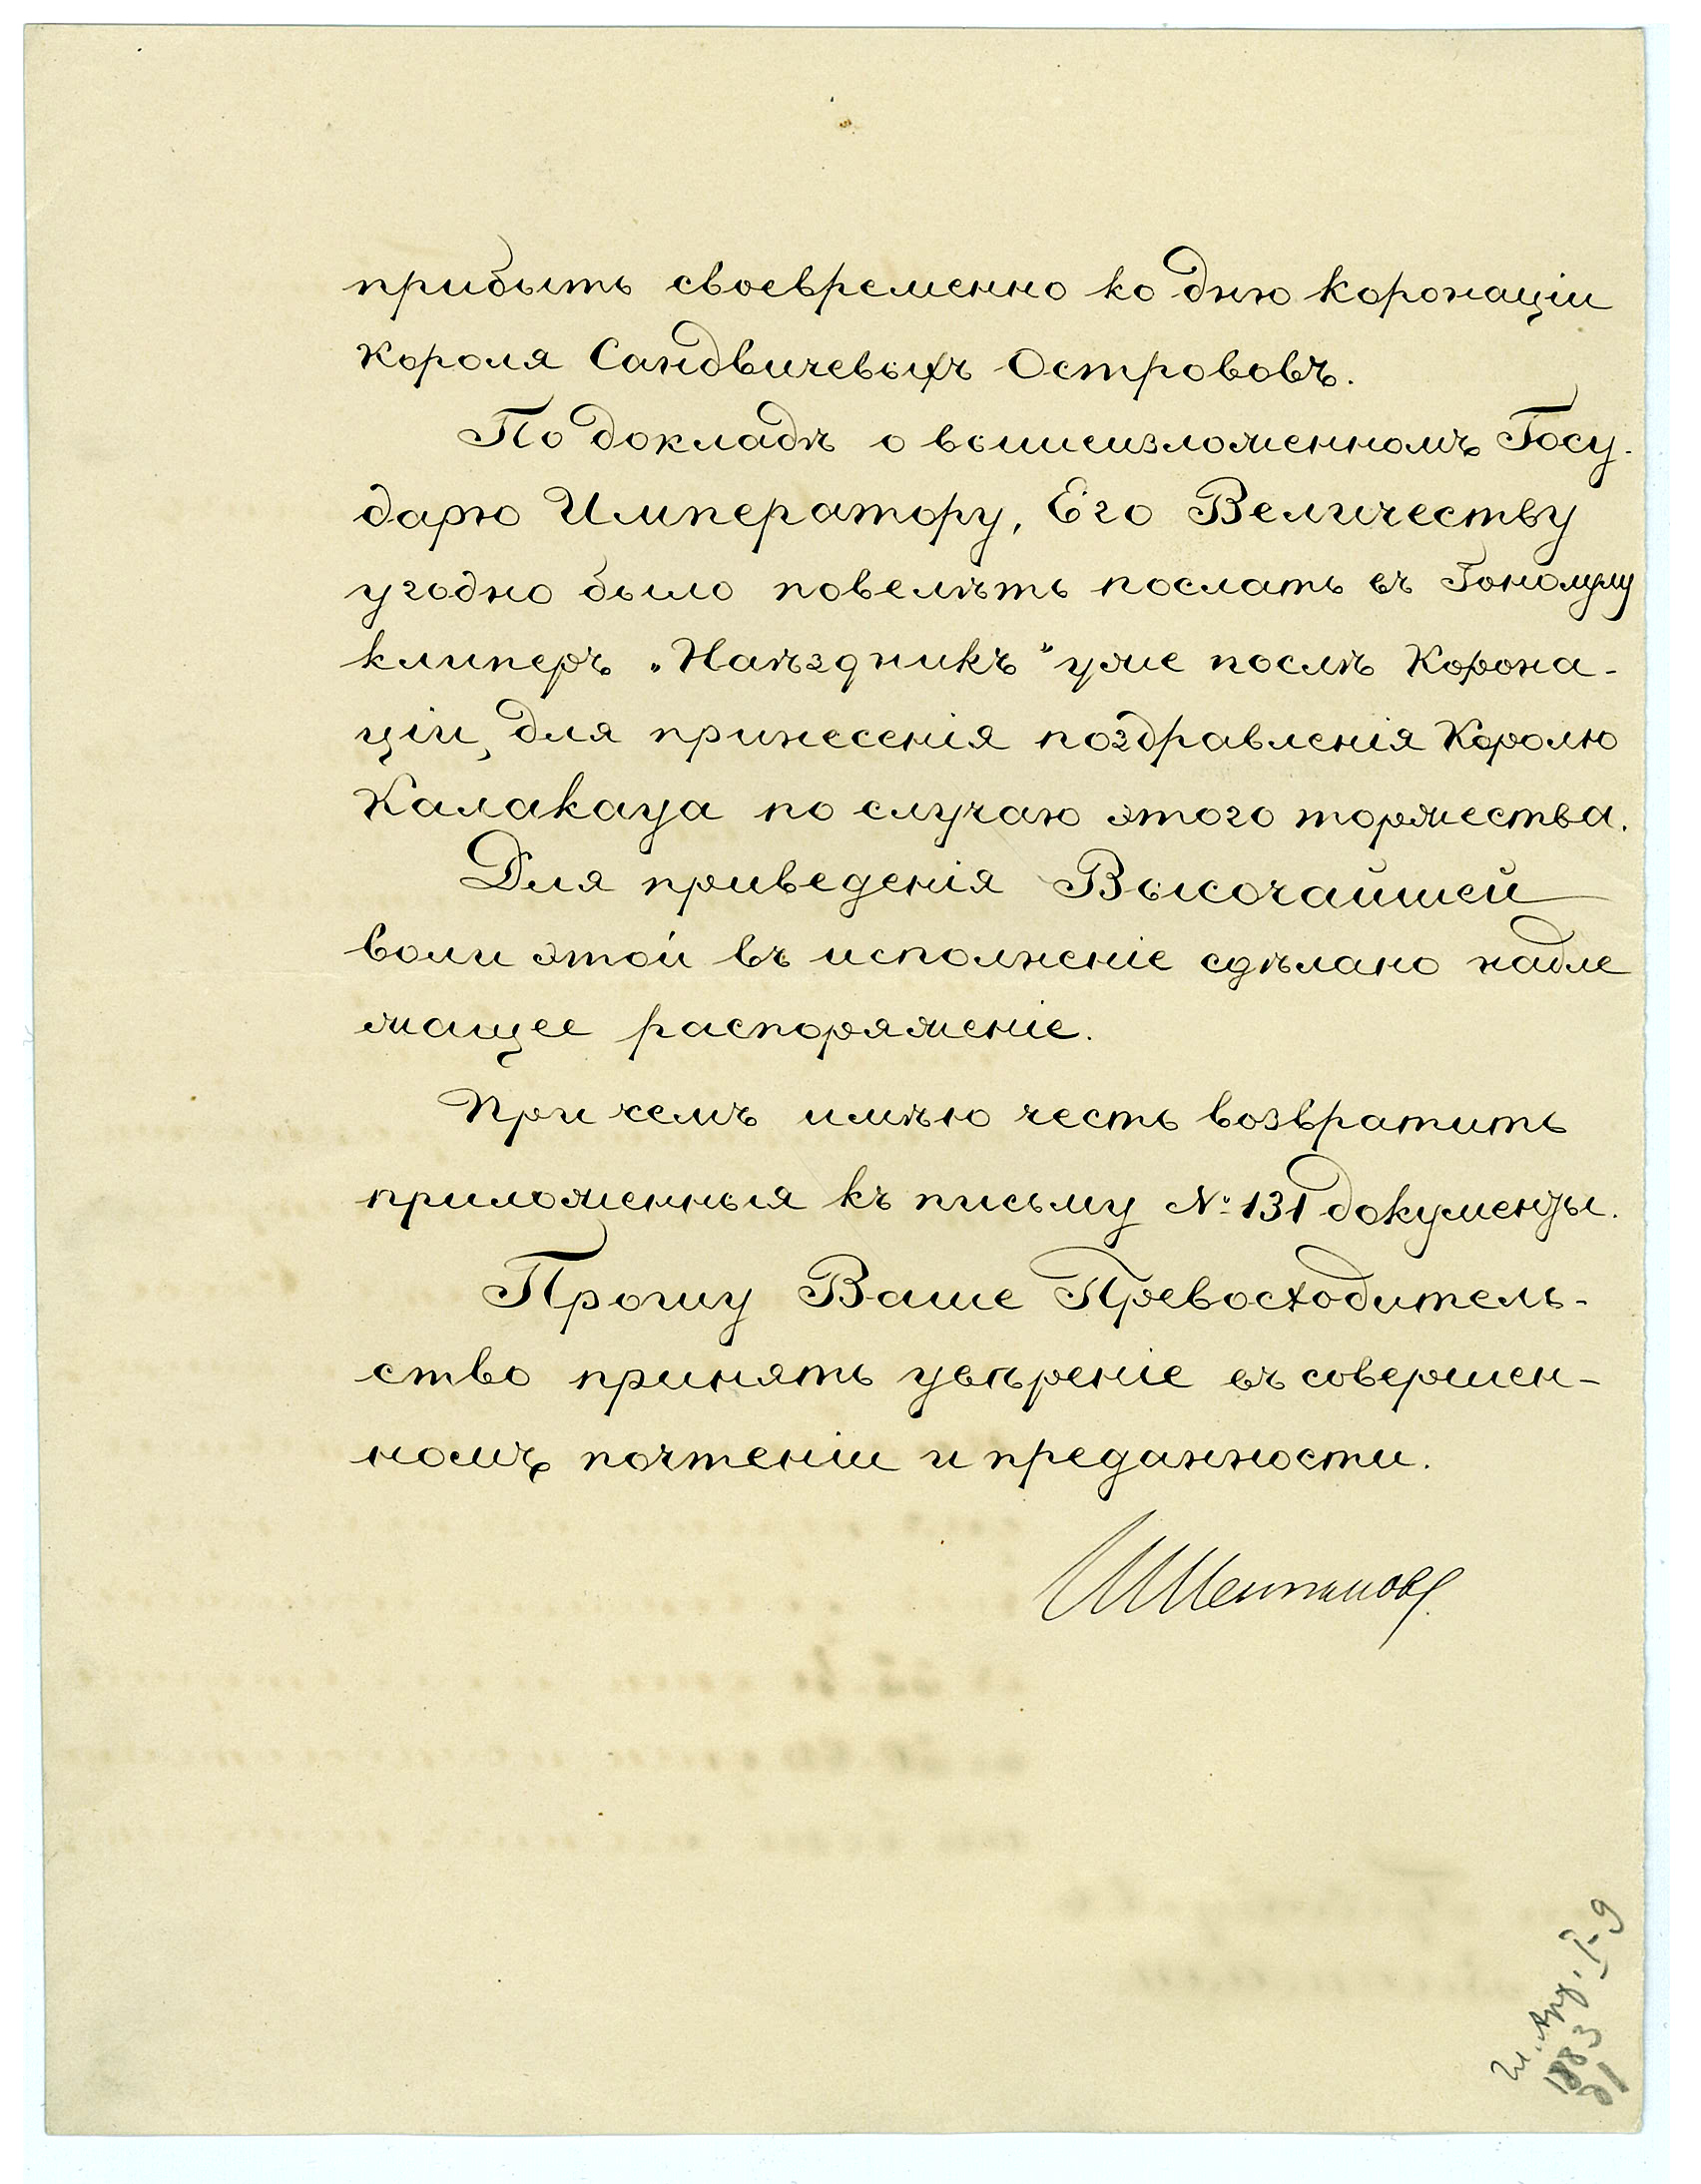 прибыть своевременно ко дню коронаціи
Короля Сандвичевыхъ Острововъ.
По докладѣ о вышеизложенномъ Госу-
дарю Императору, Его Величеству
угодно было повелѣть послать въ Гонолулу
клиперъ „Наѣздникъ" уже послѣ Корона-
ціи, для принесенія поздравленія Королю
Калакауа по случаю этого торжества.
Для приведенія Высочайшей
воли этой въ исполненіе сдѣлано надле
жащее распоряженіе.
При чемъ имѣю честь возвратить
приложенныя къ письму № 131 документы.
Прошу Ваше Превосходитель-
ство принять увѣреніе въ совершен-
номъ почтеніи и преданности.
Гл. Арх. I-9
1883